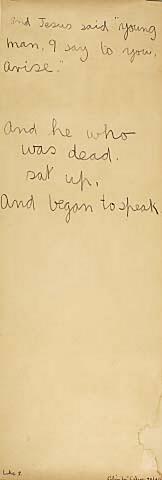 and Jesus said "young
man, I say to you,
arise."
And he who
was dead.
sat up,
and began to speak
Luke 7.